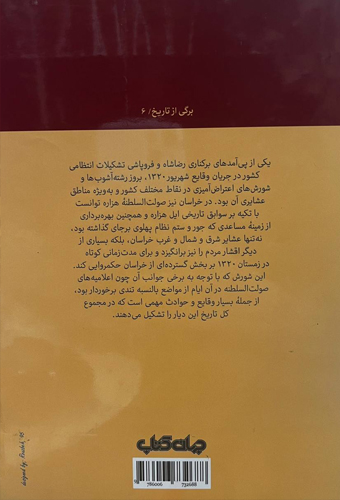 برگی از تاریخ / ۶
یکی از پی‌آمدهای برکناری رضاشاه و فروپاشی تشکیلات انتظامی
کشور در جریان وقایع شهریور ۱۳۲۰، بروز رشته‌آشوب‌ها و
شورش‌های اعتراض‌آمیزی در نقاط مختلف کشور و به‌ویژه مناطق
عشایری آن بود. در خراسان نیز صولت‌السلطنهٔ هزاره توانست
با تکیه بر سوابق تاریخی ایل هزاره و همچنین بهره‌برداری
از زمینهٔ مساعدی که جور و ستم نظام پهلوی برجای گذاشته بود،
نه‌تنها عشایر شرق و شمال و غرب خراسان، بلکه بسیاری از
دیگر اقشار مردم را نیز برانگیزد و برای مدت‌زمانی کوتاه
در زمستان ۱۳۲۰ بر بخش گسترده‌ای از خراسان حکمروایی کند.
این شورش که با توجه به برخی جوانب آن چون اعلامیه‌های
صولت‌السلطنه در آن ایام از مواضع بالنسبه تندی برخوردار بود،
از جملهٔ بسیار وقایع و حوادث مهمی است که در مجموع
کل تاریخ این دیار را تشکیل می‌دهند.
جهان کتاب
designed by